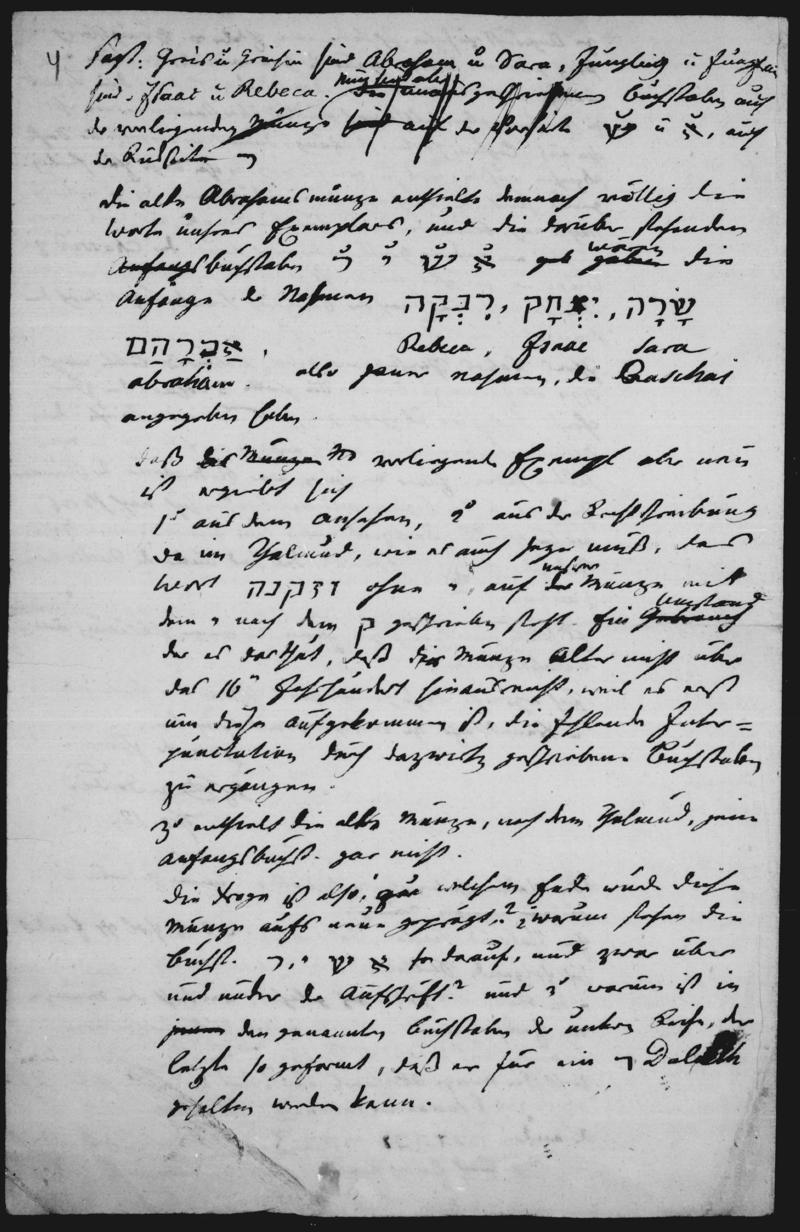 4
sagt: Greis u Greisin sind Abraham u Sara, Jüngling u Jungfrau
sind Isaac u Rebeca. Buchstaben auch
der vorliegenden Münze sind auf der Vorseite שׂ u א, auf
der Rückseite ר
die alte Abrahamsmünze enthielte demnach völlig die
Worte unsres Exemplars, und die darüber stehenden
Anfangsbuchstaben א שׂ י ר gab gäben wären die
Anfänge der Nahmen שָׂרָה, יִצְחָק, רִבְקָה
אַבְרָהָם, Rebeca, Isaac Sara
abraham. also jener nahmen, die Raschai
angegeben haben.
daß die Münze No vorliegende Exempl aber neu
ist ergiebt sich
1° aus dem ansehen, 2° aus der Rechtschreibung
da im Thalmud, wie es auch seyn muß, das
Wort וזקנה ohne י, auf der unsrer Münze mit
dem י nach dem ק geschrieben steht. Ein Gebrauch Umstand
der es darthut, daß die Münze Alter nicht über
das 16te Jahrhundert hinausreicht, weil es erst
um diese aufgekommen ist, die fehlende Inter=
punctation durch dazwisch geschriebene Buchstaben
zu ergänzen.
3° enthielt die alte Münze, nach dem Thalmud, jene
anfangsbuchst. gar nicht.
die Frage ist also, 1 zu welchem Ende wurde diese
Münze aufs neue geprägt? 2 warum stehen die
buchst. א שׂ י, ר darauf, und zwar über
und unter der Aufschrift? und 3 warum ist in
jenen den genannten buchstaben der untern Reihe, der
letzte so geformt, daß er für ein ד Daleth
gehalten werden kann.